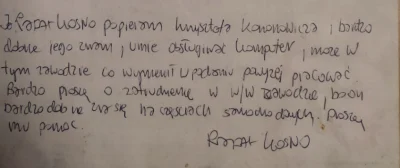 Ja Rafał KOSNO popieram Krzysztofa Kononowicza, bardzo
dobrze jego znam, umie obsługiwać komputer, może w
tym zawodzie co wymienił u podaniu powyżej pracować.
Bardzo proszę o zatrudnienie w w/w zawodzie, bądź
bardzo dobrze zna się na częściach samochodowych. Proszę
mu pomóc.
Rafał KOSNO